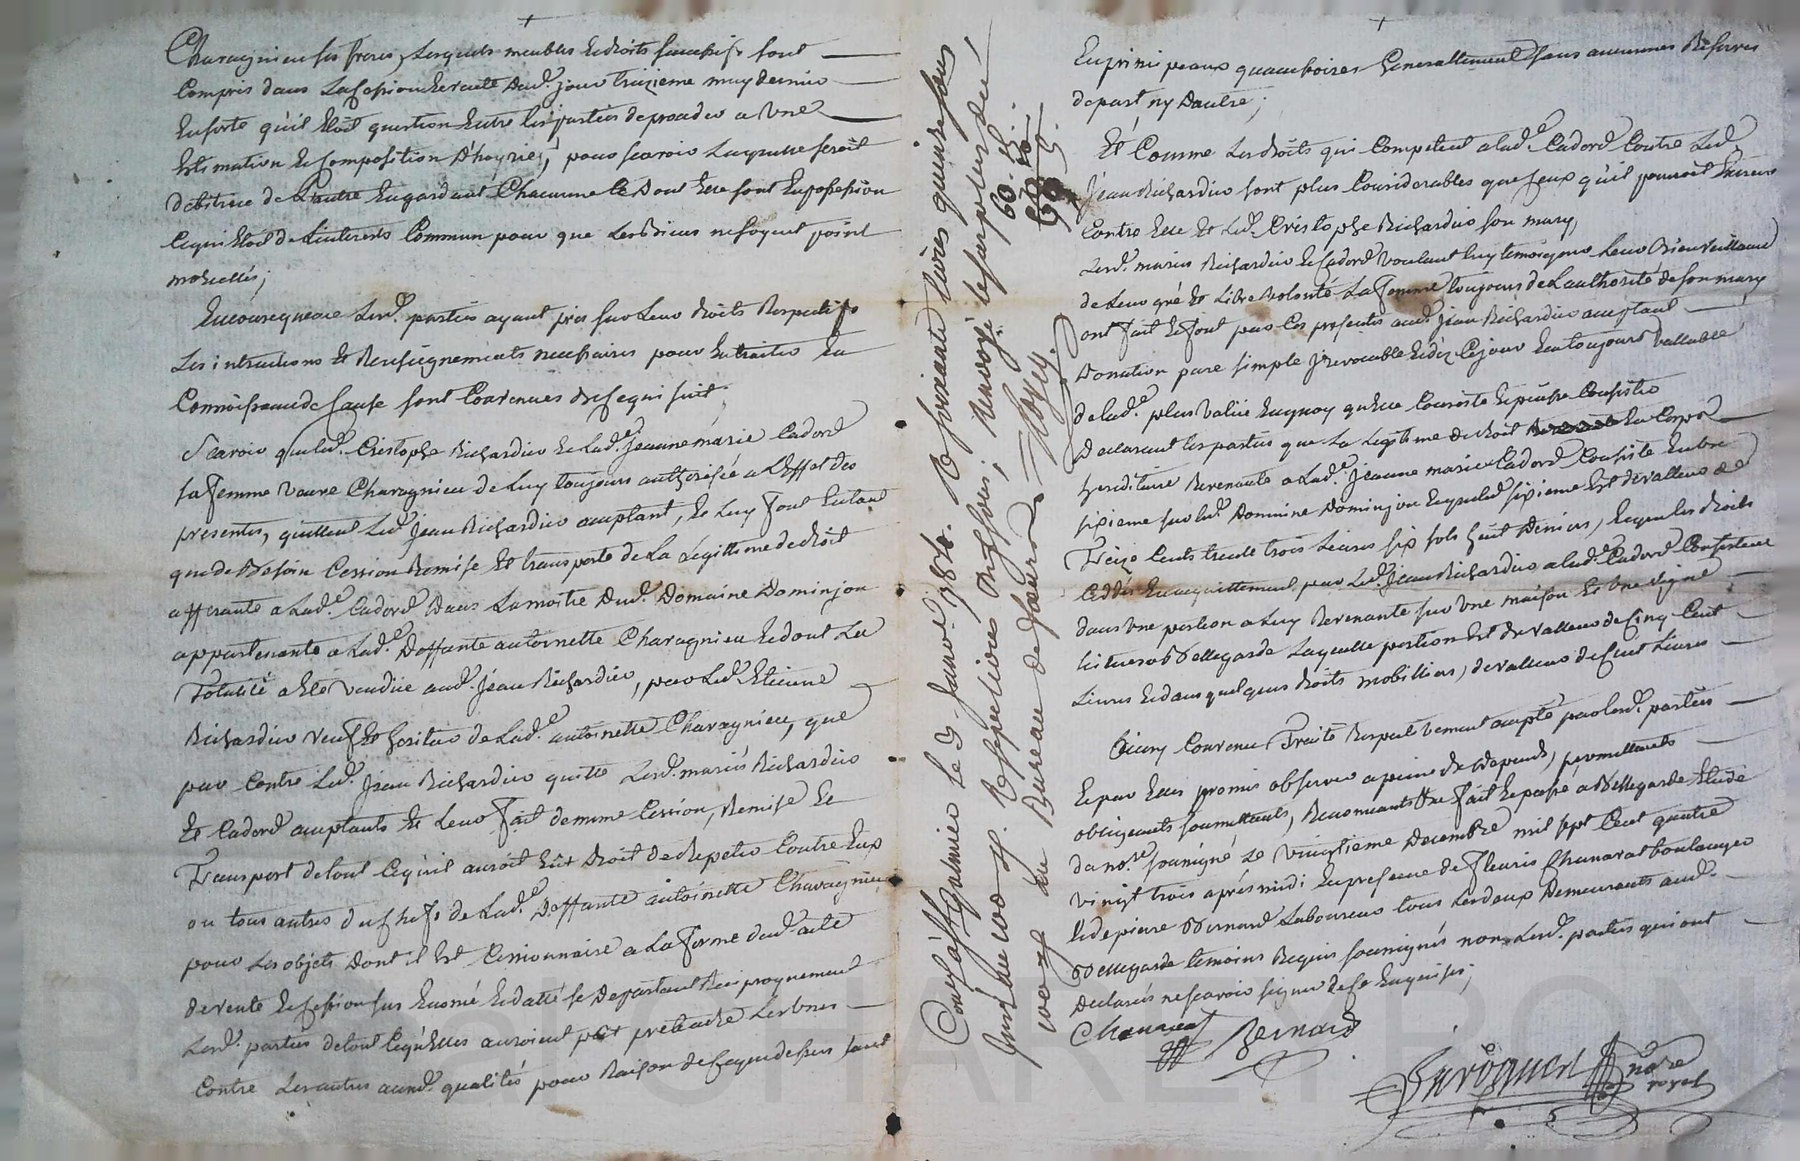 Charagnieu ses freres, Lesquels meubles et droits successifs sont
Compris dans La Cession du jour treizieme may dernier
Ensorte qu'il Etoit question Entre les parties de proceder a Une
Estimation et Composition D'hoyries, pour scavoir Laquelle seroit
debitrice de L'autre En gardant Chacunne Ce Dont Elle sont En possession
Ce qui Etoit de L'interets Commun pour que Les Biens ne soyent point
morcellés;
En Consequence Lesd. parties ayant pris sur Leur droits Respectifs
Les intructions Et Renseignements necessaires pour En traiter En
Connoissance de Cause sont Convenues de Ce qui suit.
Scavoir que led. Cristophe Richardier et Lad.e Jeanne marie Cadord
sa femme vauve Charagnieu de Luy toujours authorisée a L'Effet des
presentes, quittent Led. Jean Richardier acceptant, et Luy font En tant
que de Besoin Cession Remise Et transports de La Legittime de droit
afferante a Lad.e Cadord Dans La moitie Dud. Domaine Dominjon
appartenante a Lad.e Deffante antoinette Charagnieu Et dont La
Totalité a Eté vendüe aud. Jean Richardier, par Led. Etienne
Richardier veuf Et heritier de Lad.e antoinette Charagnieu, que
par Contre Led. Jean Richardier quitte Lesd. mariés Richardier
Et Cadord acceptants Et Leur fait de meme Cession, Remise Et
Transport de tout Ce qu'il auroit Eut Droit de Repeter Contre Eux
ou tous autres du Chefs de Lad.e Deffante antoinette Charagnieu
pour Les objets Dont il Est Cessionnaire a La forme dud. acte
de vente et Cession sus Enoncé Et datté se Departant Reciproquement
Lesd. parties de tout Ce qu'Elles auroient put pretendre Les Unes
Contre Les autres auxd. qualités pour Raison de Ce que dessus tant
Con.lé à St Galmier Le 3 Janvier 1784. R. soixante livres quinze sous
renvoyé le surplus du
au Bureau de
60.15.
En principeaux qu'accessoires Generallement sans aucunnes Reserves
depart ny Dautre;
Et Comme Les droits qui Competent a Lad.e Cadord Contre Led.
Jean Richardier sont plus Considerables que Ceux qu'il pouvoit Exercer
Contre Elle Et Led. Cristophe Richardier son mary,
Lesd. mariés Richardier et Cadord voulant luy temoigner Leur Bienveillance
de Leur gré Et Libre Volonté La femme toujours de L'authorité de son mary
ont fait Et font par Ces presentes aud. Jean Richardier acceptant
Donation pure simple Irrevocable Et dez Ce jour Et a toujours Vallable
de Lad.e plus Value En quoy qu'Elle Consiste Et puisse Consister
Declarant Les parties que La Legitime de droit En Corps
hereditaire Revenante a Lad.e Jeanne marie Cadord Consiste En Un
sixieme sur led. Dommine Dominjon lequel sixieme Est de valleur de
Treize Cents trente trois Livres six sols huit Deniers, Et que les droits
Cédés En acquittement par Led. Jean Richardier a Lad. Cadord Consistent
dans Une portion a Luy Revenante sur Une maison Et Une vigne
situées a Bellegarde Laquelle portion Est de valleur de Cinq Cent
Livres Et dans quelques droits mobilliers, de valleurs de Cent Livres
Ainsy Convenu Traité Respectivement accepté par Lesd. parties
Et par Elles promis observer a peine de depends, promettants
obligeants soumettants, Renonceants &c fait Et passé a Bellegarde Etude
du no.re soussigné Le vingtieme Decembre mil sept Cent quatre
vingt trois aprés midi En presence de fleuris Chanarat boulanger
Et de pierre Bernard Laboureur tous Lesdeux Demeurants aud.
Bellegarde temoins Requis soussignés non Lesd. parties qui ont
Declarés ne scavoir signer de Ce Enquises;
Chanarat Bernard
no.re
royal